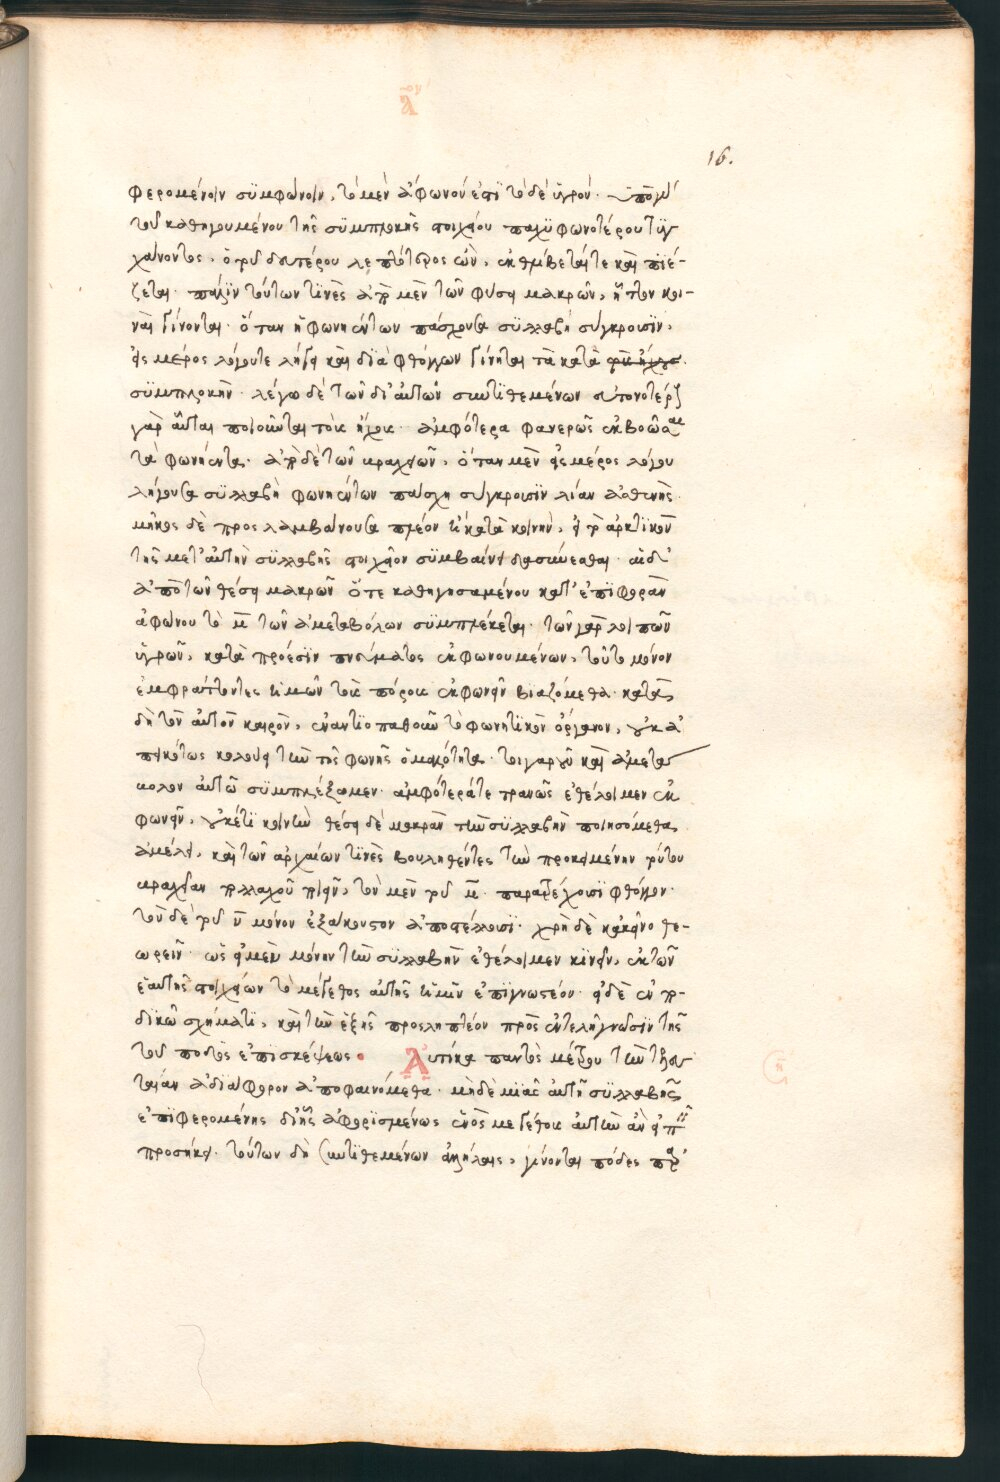 Α ον
16.
φερομένοιν συμφώνοιν, τὸ μὲν ἄφωνον ἐπῇ τὸ δὲ ὑγρόν.
τοῦ καθηγουμένου τῆς συμπλοκῆς στοιχείου παχυφωνοτέρου τυγ
χάνοντος, ὁ τοῦ δευτέρου λεπτότερος ὢν, ἐκθλίβεταί τε καὶ πιέ-
ζεται. πάλιν τούτων τινὲς ἀπὸ μὲν τῶν φύσει μακρῶν, ἧττον κοι-
ναὶ γίνονται. ὅταν ἡ φωνηέντων πάσχουσα συλλαβὴ σύγκρουσιν,
εἰς μέρος λόγου τε λήγῃ καὶ δύο φθόγγων γίνηται τὰ κατὰ
συμπλοκήν. λέγω δὲ τῶν δι' αὐτῶν συντιθεμένων
γὰρ αὗται ποιοῦνται τοὺς ἤχους. ἀμφότερα φανερῶς ἐκβοῶσαι
τὰ φωνήεντα. ἀπὸ δὲ τῶν βραχειῶν, ὅταν μὲν εἰς μέρος λόγου
λήγουσα συλλαβὴ φωνηέντων πάσχῃ σύγκρουσιν λίαν ἀσθενής.
μῆκος δὲ προσλαμβάνουσα πλέον ἢ κατὰ κοινὴν, εἰ τὸ ἀρκτικὸν
τῆς μετ' αὐτὴν συλλαβῆς στοιχεῖον συμβαίνει δασύνεσθαι.
ἀπὸ τῶν θέσει μακρῶν ὅτε καθηγησαμένου κατ' ἐπιφορὰν
ἀφώνου τὸ μ τῶν ἀμεταβόλων συμπλέκεται. τῶν γὰρ λοιπῶν
ὑγρῶν, κατὰ προέσιν πνεύματος ἐκφωνουμένων, τοῦτο μόνον
ἐμφράττοντες ἡμῶν τοὺς πόρους ἐκφωνεῖν βιαζόμεθα. κατὰ
δὴ τὸν αὐτὸν καιρὸν, ἐναντιοπαθοῦν τὸ φωνητικὸν ὄργανον, οὐκ ἀ
πεικότως κολούει τὴν τῆς φωνῆς ὁμαλότητα. τοιγαροῦν κἂν ἀμετά
βολον αὐτῷ συμπλέξωμεν ἀμφότερά τε τρανῶς ἐθέλοιμεν ἐκ
φωνεῖν, οὐκέτι κοινὴν θέσει δὲ μακρὰν τὴν συλλαβὴν ποιησόμεθα.
ἀμέλει, καὶ τῶν ἀρχαίων τινὲς βουληθέντες τὴν προκειμένην τούτου
βραχεῖαν πολλαχοῦ ποιεῖν, τὸν μὲν τοῦ μ παραψέχουσι φθόγγον.
τὸν δὲ τοῦ ν μόνον ἐξάκουστον ἀποτελοῦσι. χρὴ δὲ κἀκεῖνο θε-
ωρεῖν. ὡς εἰ μὲν μόνην τὴν συλλαβὴν ἐθέλοιμεν κινεῖν, ἐκ τῶν
ἑαυτῆς στοιχείων τὸ μέγεθος αὐτῆς ἡμῖν ἐπιγνωστέον. εἰ δὲ ἐν πο-
δικῷ σχήματι, καὶ τὴν ἑξῆς προσληπτέον πρὸς ἐντελῆ γνῶσιν τῆς
τοῦ ποδὸς ἐπισκέψεως. Αὐτίκα παντὸς μέτρου τὴν τελευ
ταίαν ἀδιάφορον ἀποφαινόμεθα. μηδεμιᾶς αὐτῇ συλλαβῆς
ἐπιφερομένης δι' ἧς ἀφωρισμένως ἑνὸς μεγέθους αὐτὴν ἂν εἰπεῖν
προσήκει. τούτων δὴ συντιθεμένων ἀλλήλαις, γίνονται πόδες